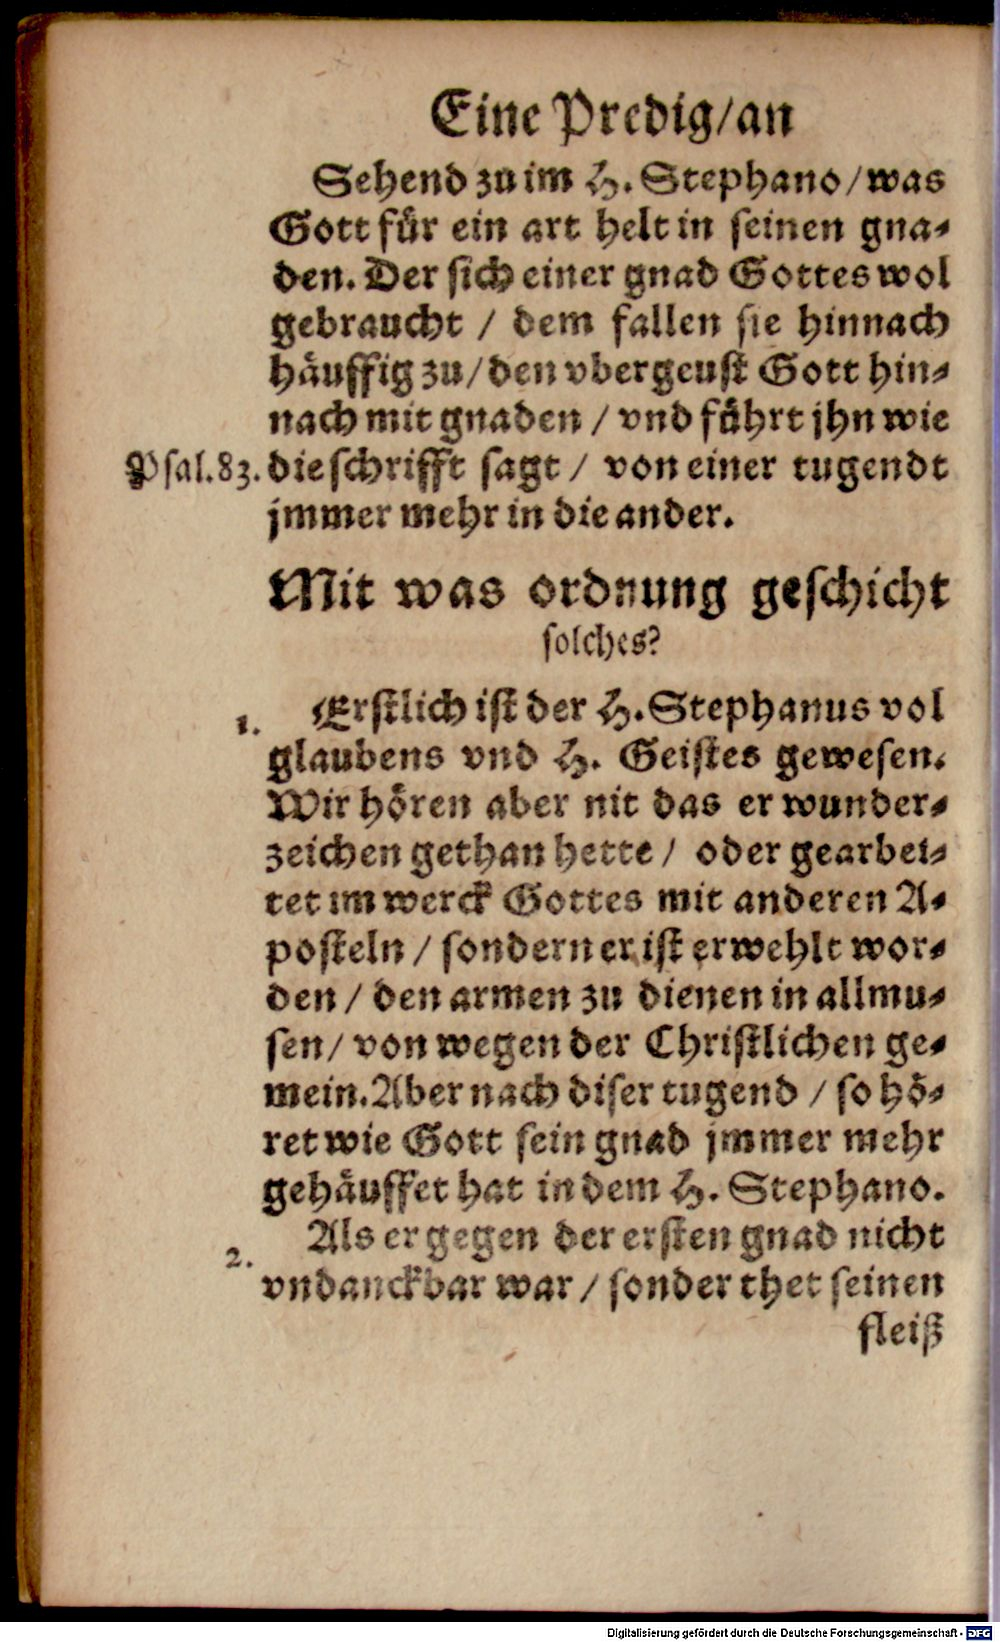 Eine Predig/an
Sehend zu im H. Stephano/was
Gott für ein art helt in seinen gna-
den. Der sich einer gnad Gottes wol
gebraucht / dem fallen sie hinnach
häuffig zu/den vbergeust Gott hin-
nach mit gnaden / vnd führt jhn wie
Psal.83. die schrifft sagt / von einer tugendt
jmmer mehr in die ander.
Mit was ordnung geschicht
solches?
1. Erstlich ist der H. Stephanus vol
glaubens vnd H. Geistes gewesen.
Wir hören aber nit das er wunder-
zeichen gethan hette / oder gearbei-
tet im werck Gottes mit anderen A-
posteln / sondern er ist erwehlt wor-
den / den armen zu dienen in allmu-
sen/ von wegen der Christlichen ge-
mein. Aber nach diser tugend / so hö-
ret wie Gott sein gnad jmmer mehr
gehäuffet hat in dem H. Stephano.
2. Als er gegen der ersten gnad nicht
vndanckbar war / sonder thet seinen
fleiß
Digitalisierung gefördert durch die Deutsche Forschungsgemeinschaft - DFG